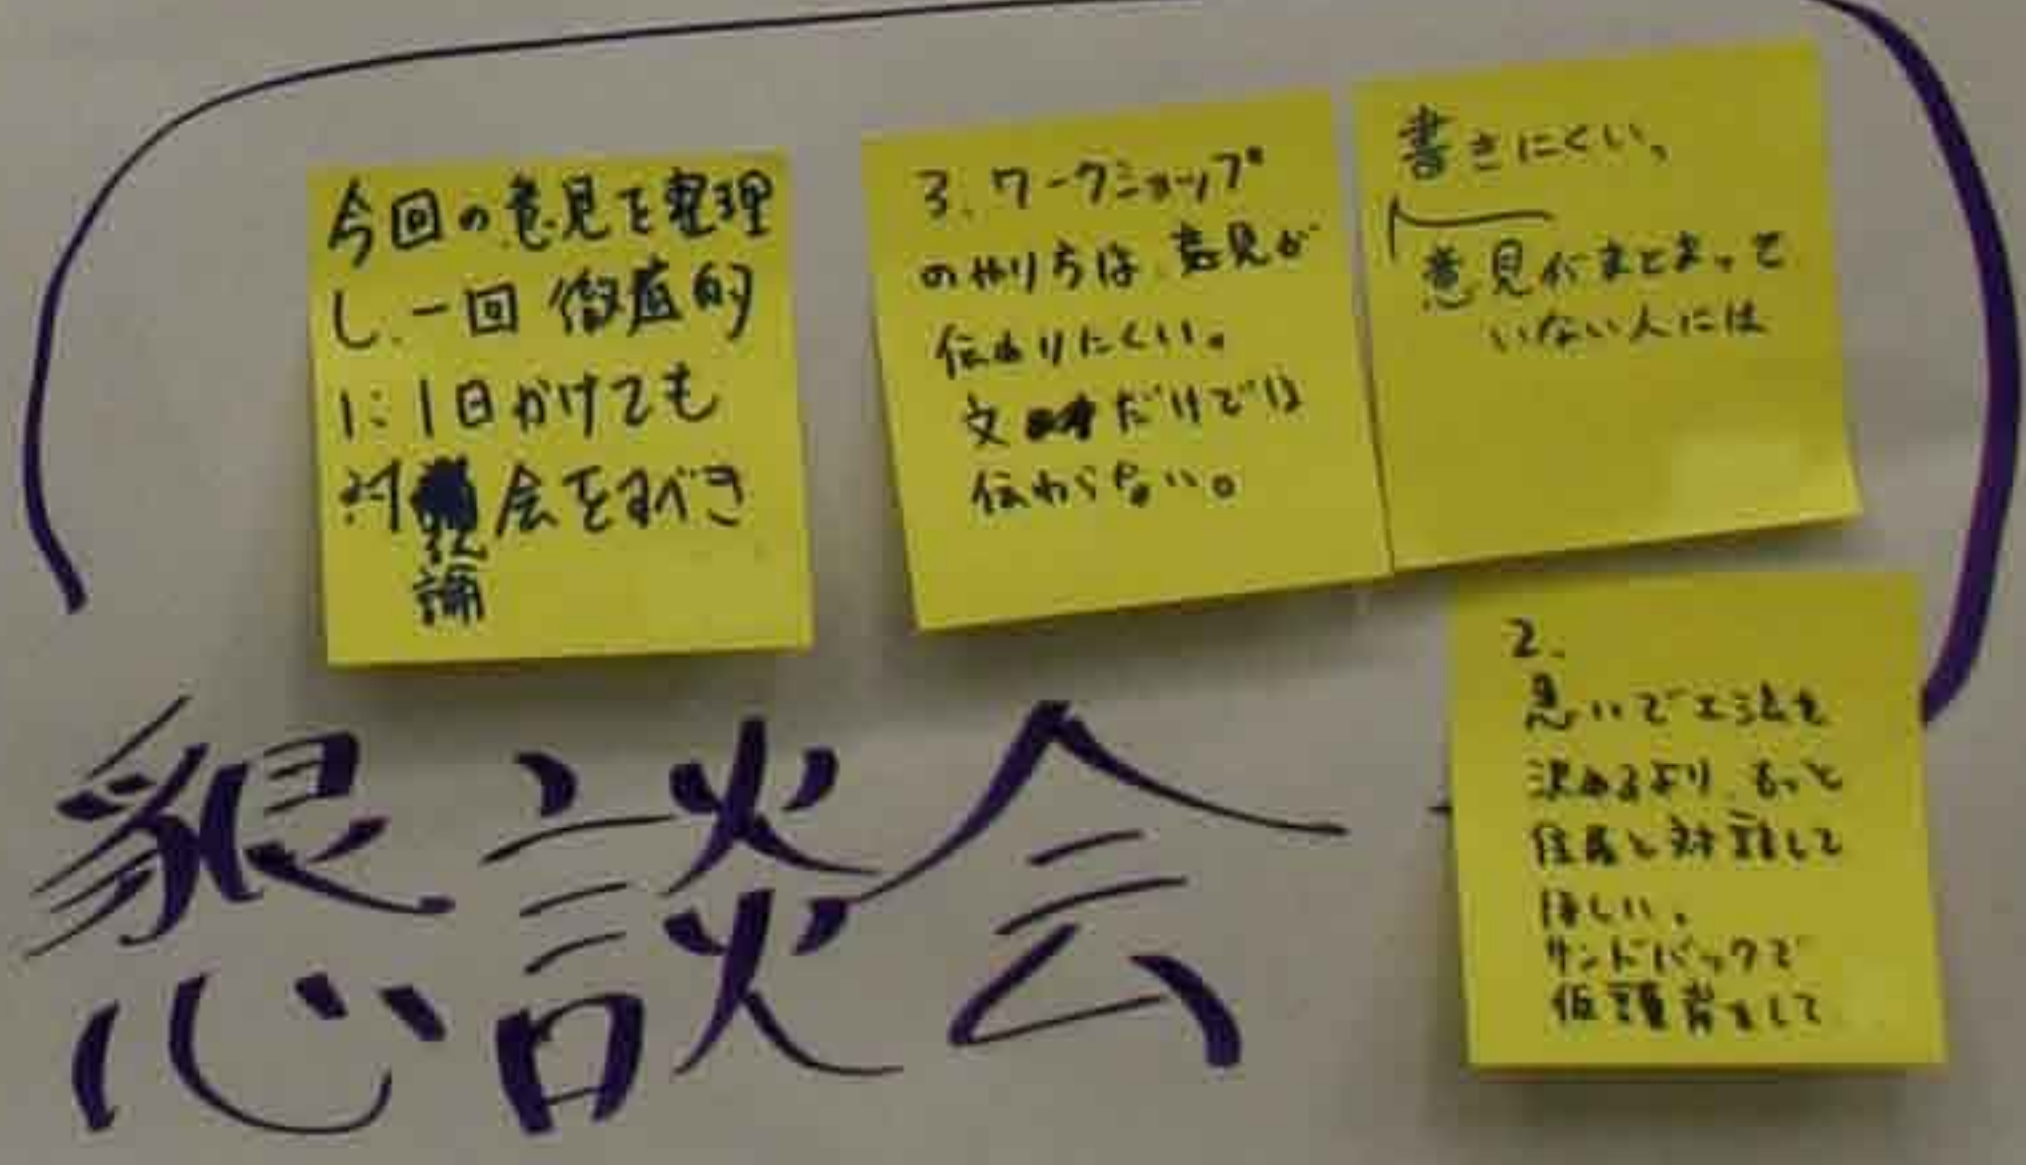 今回の意見を整理
し、一回 徹底的
に1日かけても
討論会をすべき
3. ワークショップ
のやり方は、意見が
伝わりにくい。
文だけでは
伝わらない。
書きにくい、
意見がまとまって
いない人には
2.
急いで工法を
決めるより、もっと
住民と対話して
ほしい。
サンドバックで
仮護岸をして
懇談会